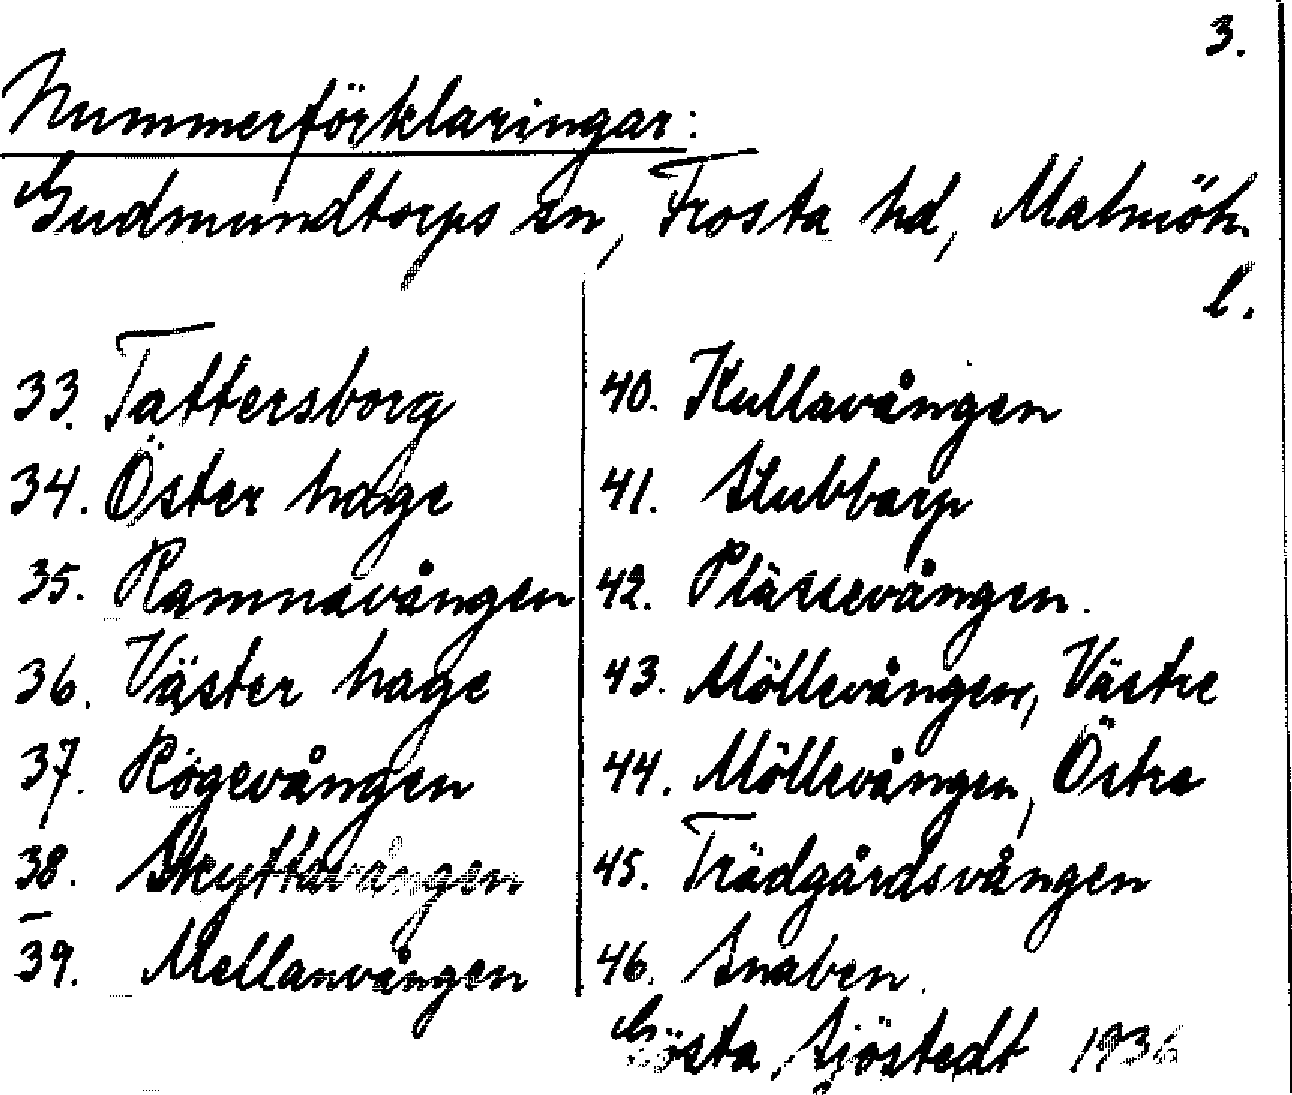 3.
Nummerförklaringar:
Gudmundtorps sn, Frosta hd, Malmöh.
l.
33. Tattersborg
34. Öster hage
35. Ramnavången
36. Väster hage
37. Rögevången
38. Skyttavången
39. Mellanvången
40. Kullavången
41. Stubbarp
42. Plässevången.
43. Möllevången, Västre
44. Möllevången, Östre
45. Trädgårdsvången
46. Snaben.
Gösta Sjöstedt 1936